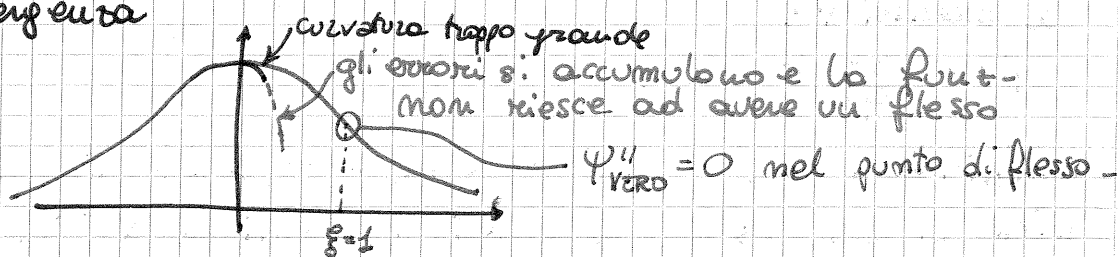 curvatura troppo grande
gli errori si accumulano e la funz-
non riesce ad avere un flesso
ψ''VERO = 0 nel punto di flesso -
ξ=1